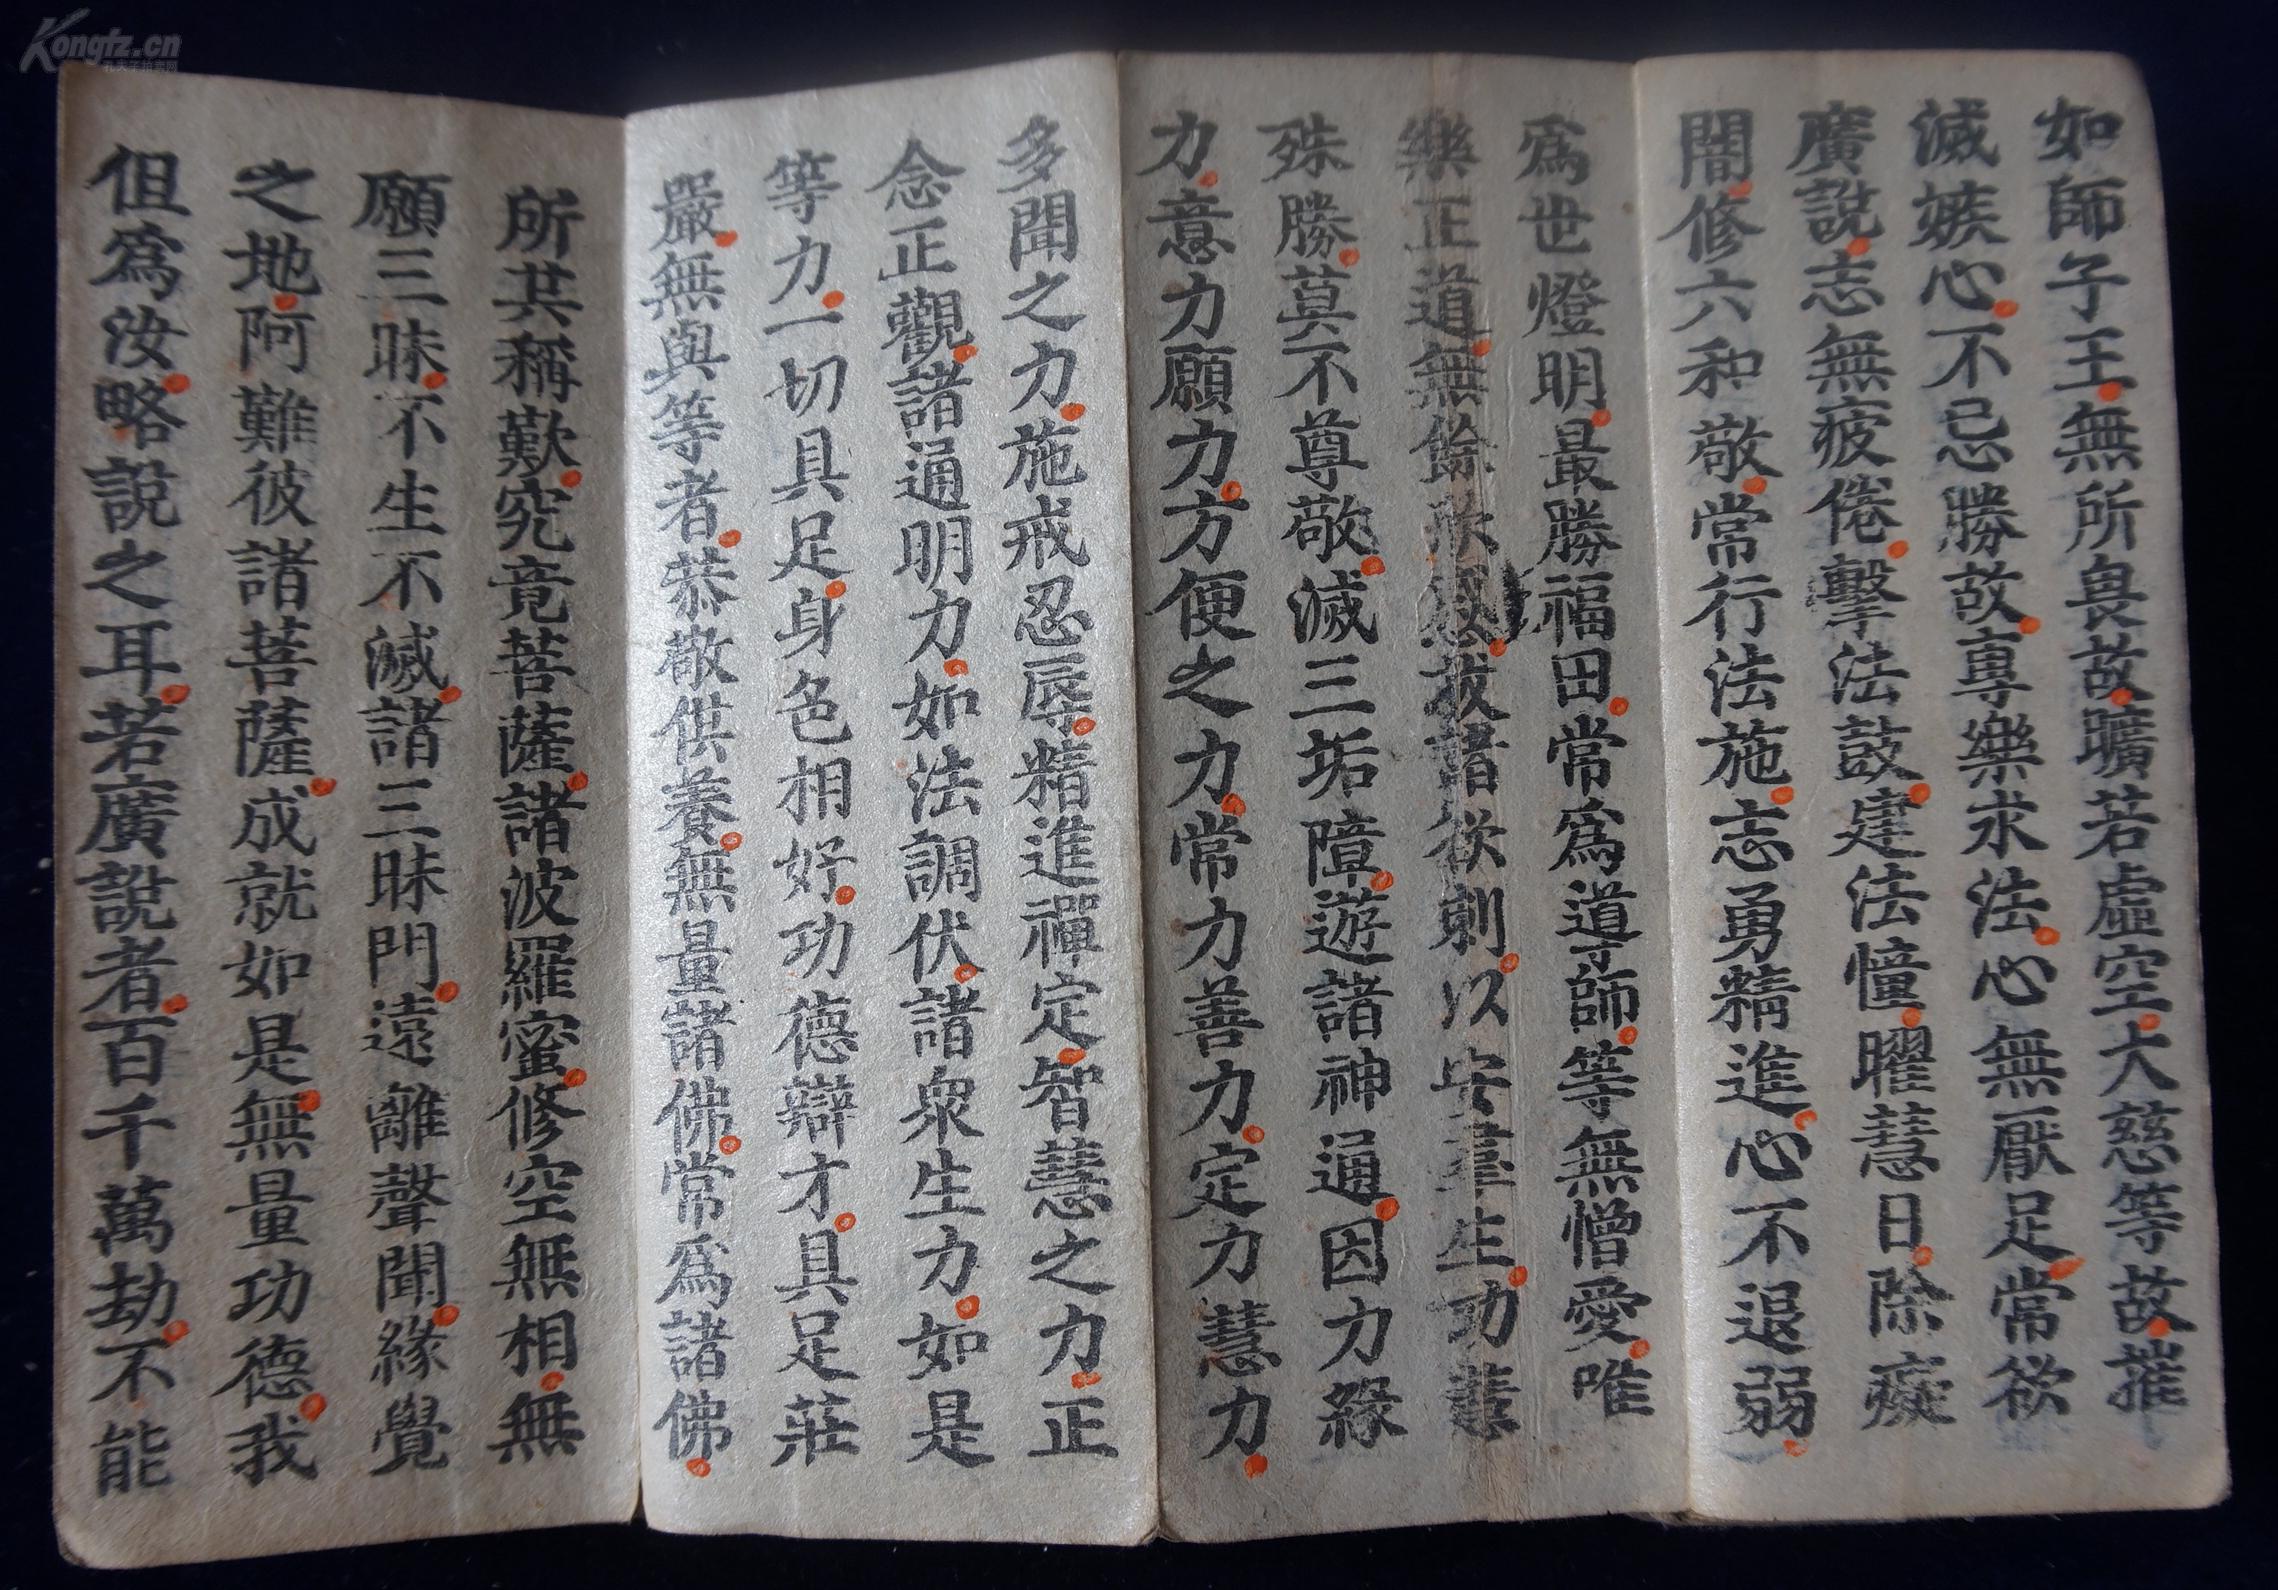 Kongfz.cn
孔夫子拍卖网
如師子王無所畏故曠若虛空大慈等故摧
滅嫉心不忌勝故專樂求法心無厭足常欲
廣說志無疲倦擊法鼓建法幢曜慧日除癡
闇修六和敬常行法施志勇精進心不退弱
爲世燈明最勝福田常爲導師等無憎愛唯
樂正道無餘欣慼拔諸欲刺以安羣生功慧
殊勝莫不尊敬滅三垢障遊諸神通因力緣
力意力願力方便之力常力善力定力慧力
多聞之力施戒忍辱精進禪定智慧之力正
念正觀諸通明力如法調伏諸衆生力如是
等力一切具足身色相好功德辯才具足莊
嚴無與等者恭敬供養無量諸佛常爲諸佛
所共稱歎究竟菩薩諸波羅蜜修空無相無
願三昧不生不滅諸三昧門遠離聲聞緣覺
之地阿難彼諸菩薩成就如是無量功德我
但爲汝略說之耳若廣說者百千萬劫不能